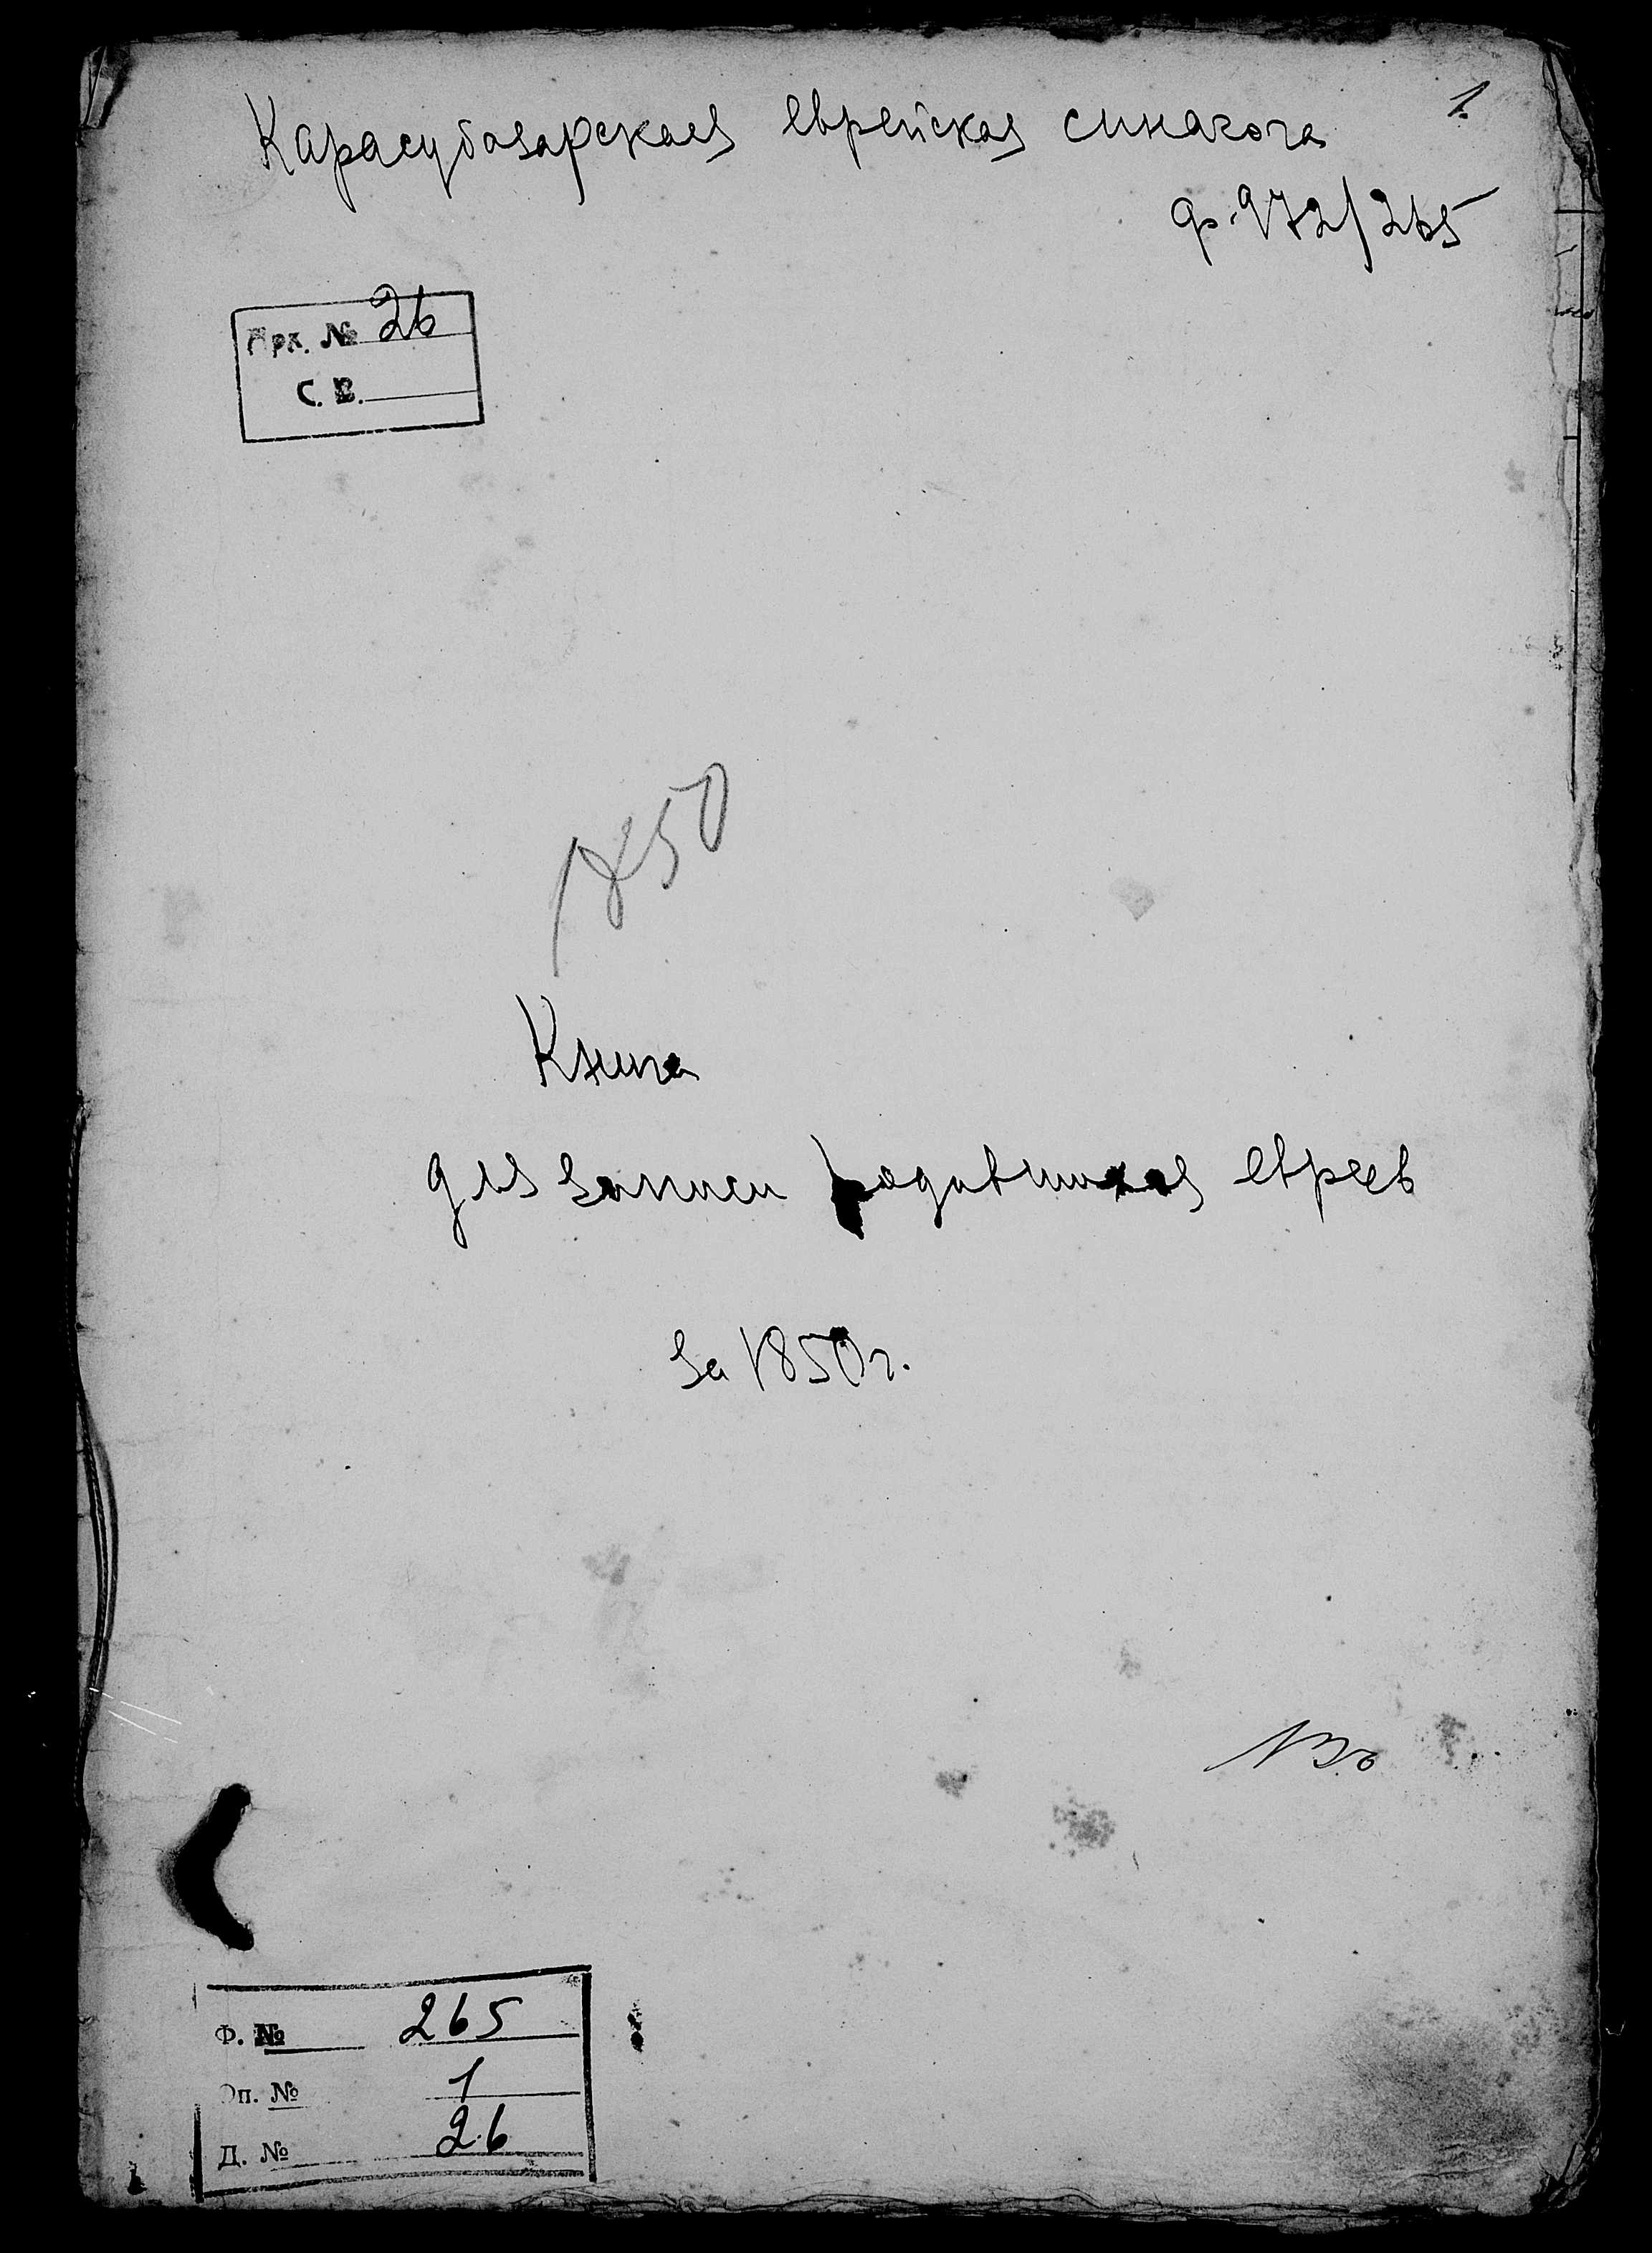 1.
Карасубазарская еврейская синагога
ф. 972/265
Арх. № 26
С. В.
1850
Книга
для записи родившихся евреев
за 1850 г.
Ф. № 265
Оп. № 1
Д. № 26